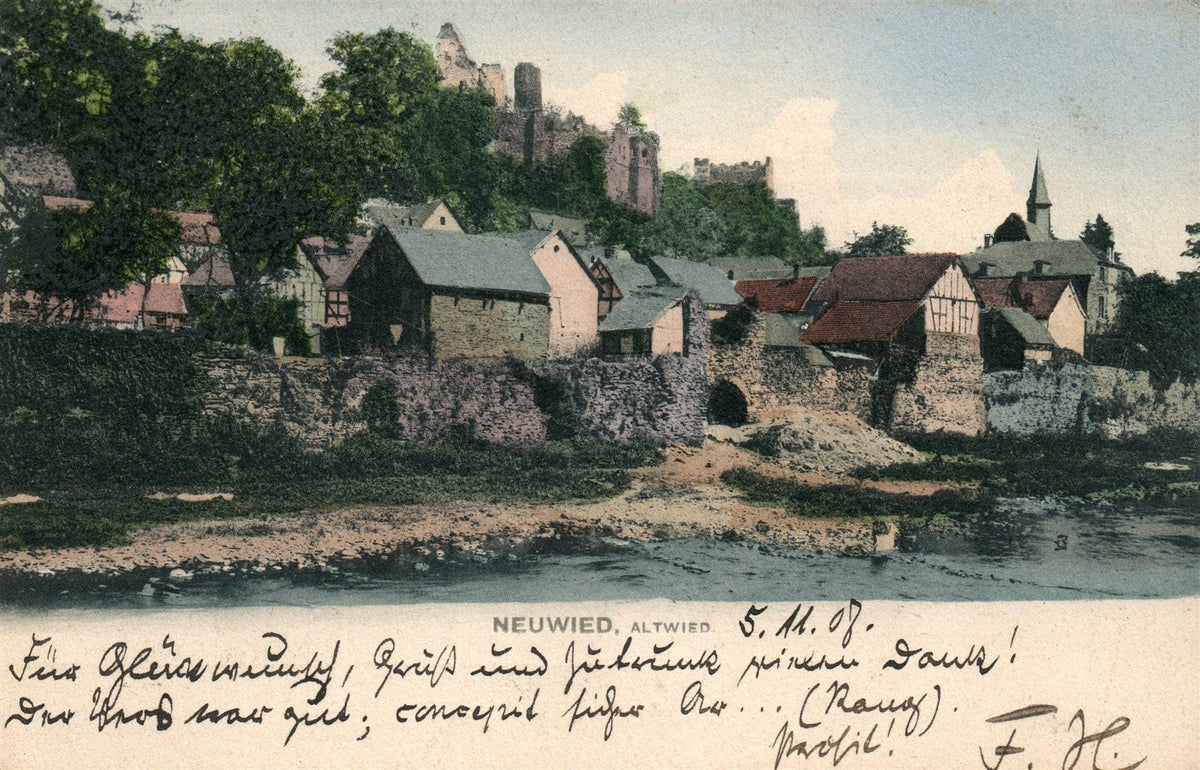 NEUWIED, ALTWIED.
5. 11. 07.
Für Glückwunsch, Gruß und Zutrunk vielen Dank!
Der Vers war gut; concepit sicher Ar... (Rang).
Prosit!
F. H.